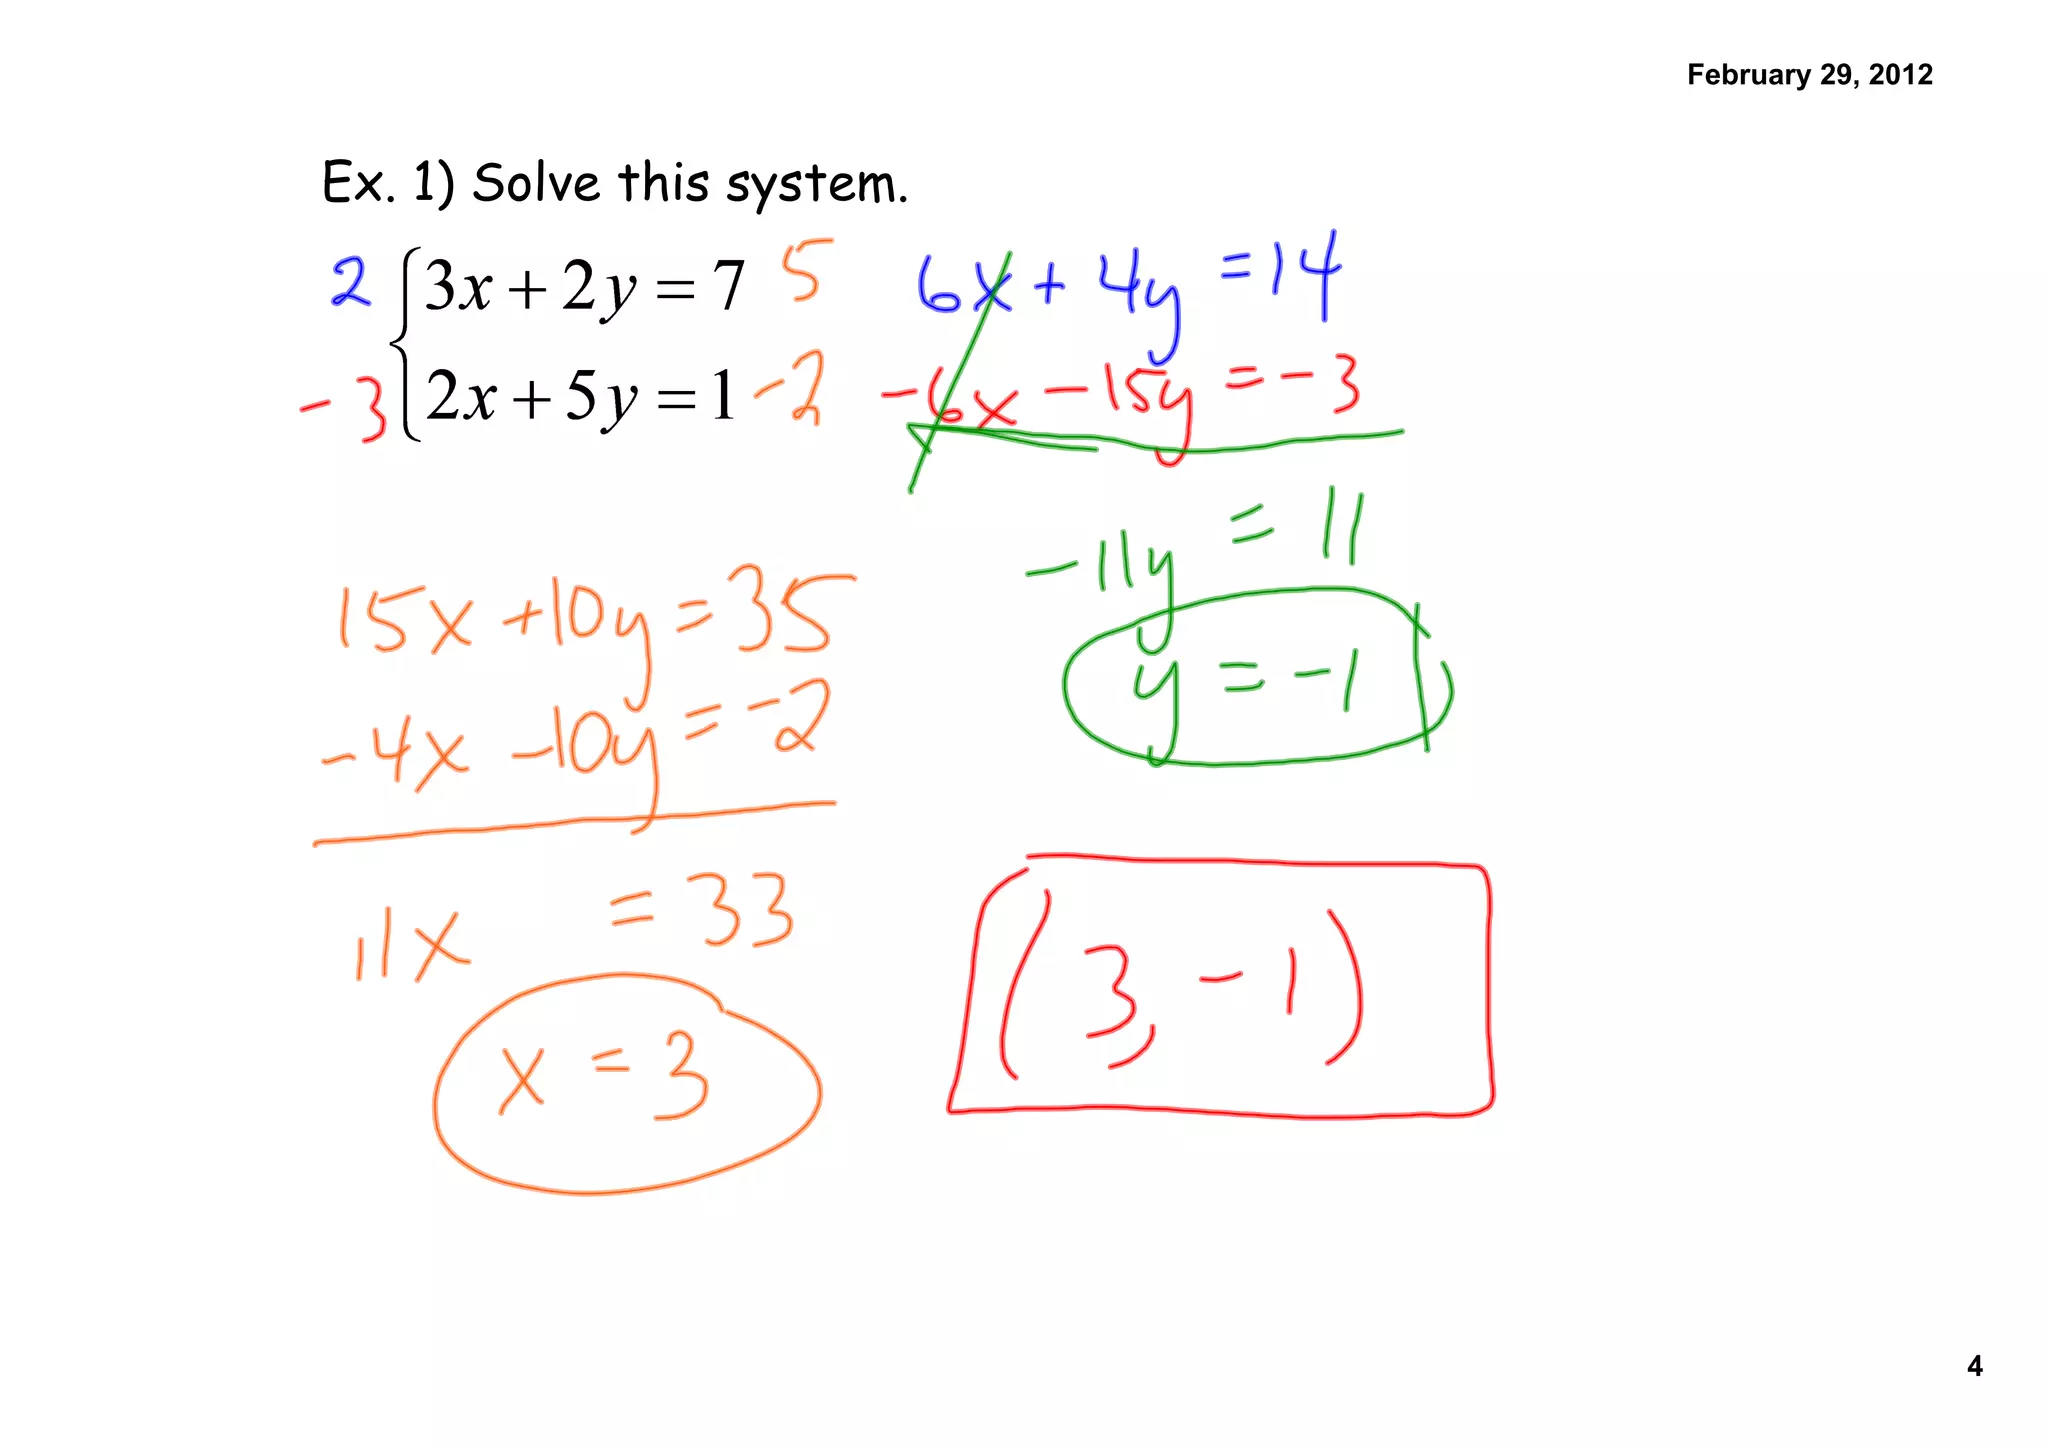 February 29, 2012
Ex. 1) Solve this system.
2 3x + 2y = 7 5
-3 2x + 5y = 1 -2
6x + 4y = 14
-6x - 15y = -3
-11y = 11
y = -1
15x + 10y = 35
-4x - 10y = -2
11x = 33
x = 3
(3, -1)
4